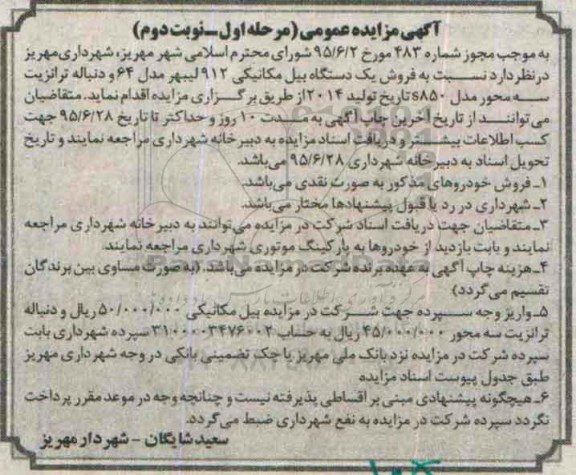 آگهی مزایده عمومی (مرحله اول ـ نوبت دوم)
به موجب مجوز شماره ۴۸۳ مورخ ۹۵/۶/۲ شورای محترم اسلامی شهر مهریز، شهرداری مهریز
در نظر دارد نسبت به فروش یک دستگاه بیل مکانیکی ۹۱۲ لیبهر مدل ۶۴ و دنباله ترانزیت
سه محور مدل s۸۵۰ تاریخ تولید ۲۰۱۴ از طریق برگزاری مزایده اقدام نماید. متقاضیان
می توانند از تاریخ آخرین چاپ آگهی به مدت ۱۰ روز و حداکثر تا تاریخ ۹۵/۶/۲۸ جهت
کسب اطلاعات بیشتر و دریافت اسناد مزایده به دبیرخانه شهرداری مراجعه نمایند و تاریخ
تحویل اسناد به دبیرخانه شهرداری ۹۵/۶/۲۸ می باشد.
۱ـ فروش خودروهای مذکور به صورت نقدی می باشد.
۲ـ شهرداری در رد یا قبول پیشنهادها مختار می باشد.
۳ـ متقاضیان جهت دریافت اسناد شرکت در مزایده می توانند به دبیرخانه شهرداری مراجعه
نمایند و بابت بازدید از خودروها به پارکینگ موتوری شهرداری مراجعه نمایند.
۴ـ هزینه چاپ آگهی به عهده برنده شرکت در مزایده می باشد. (به صورت مساوی بین برندگان
تقسیم می گردد)
۵ـ واریز وجه سپرده جهت شرکت در مزایده بیل مکانیکی ۵۰/۰۰۰/۰۰۰ ریال و دنباله
ترانزیت سه محور ۴۵/۰۰۰/۰۰۰ ریال به حساب ۳۱۰۰۰۰۳۴۷۶۰۰۲ سپرده شهرداری بابت
سپرده شرکت در مزایده نزد بانک ملی مهریز یا چک تضمینی بانکی در وجه شهرداری مهریز
طبق جدول پیوست اسناد مزایده
۶ـ هیچگونه پیشنهادی مبنی بر اقساطی پذیرفته نیست و چنانچه وجه در موعد مقرر پرداخت
نگردد سپرده شرکت در مزایده به نفع شهرداری ضبط می گردد.
سعید شایگان - شهردار مهریز